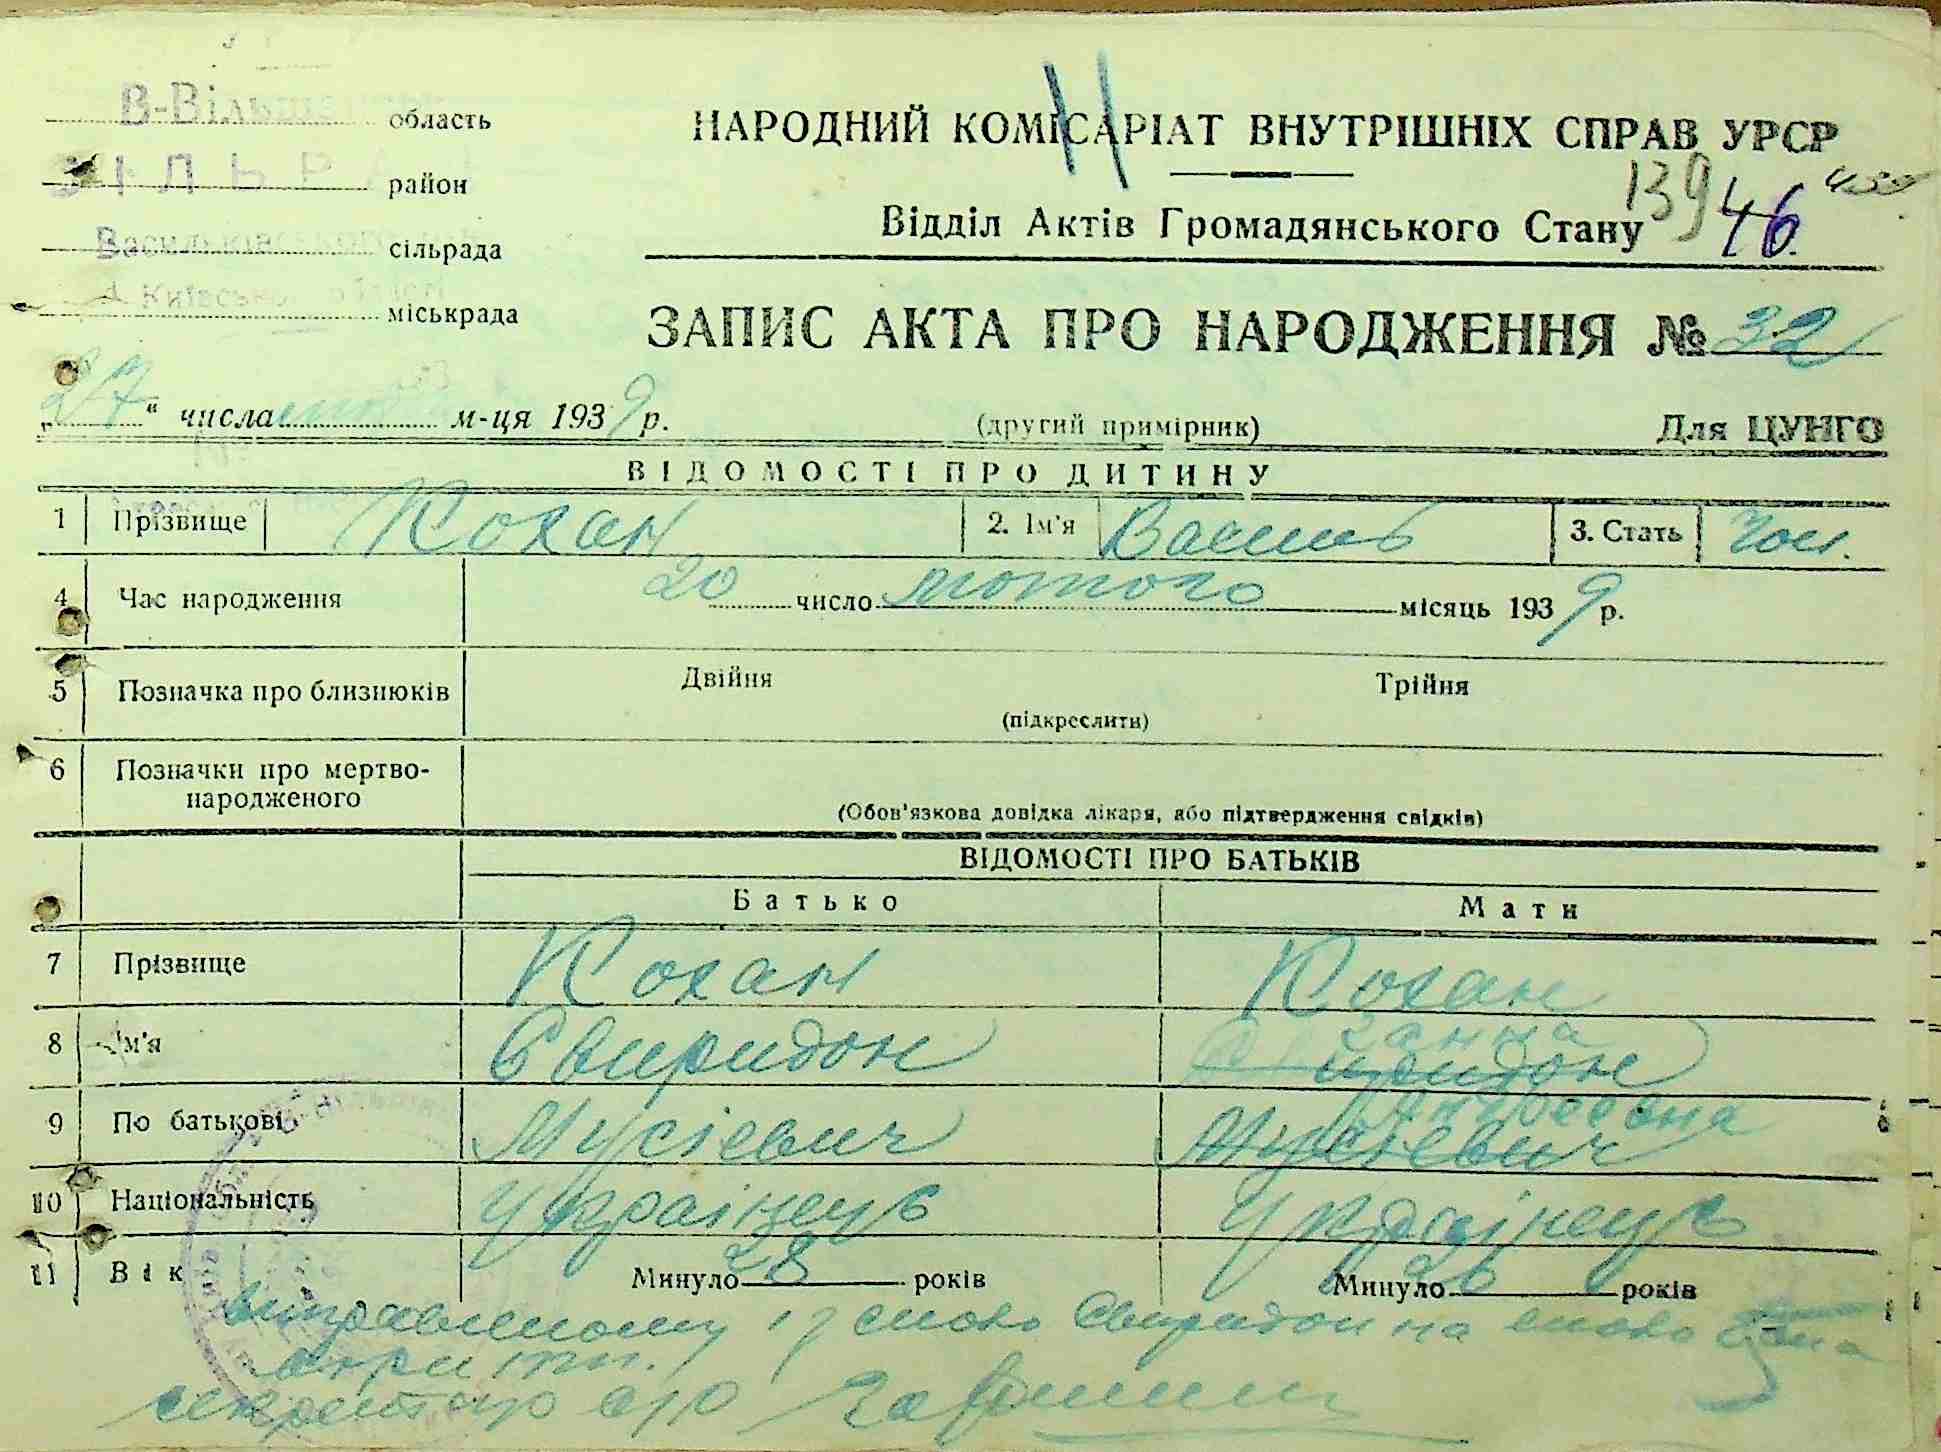 В-Вільшанська область
СІЛЬРАДА район
Васильківського р-ну сільрада
Київської області міськрада
НАРОДНИЙ КОМІСАРІАТ ВНУТРІШНІХ СПРАВ УРСР
139 46
Відділ Актів Громадянського Стану
ЗАПИС АКТА ПРО НАРОДЖЕННЯ № 32
„27“ числа м-ця 1939 р. (другий примірник) Для ЦУНГО
ВІДОМОСТІ ПРО ДИТИНУ
1 Прізвище Кохан 2. Ім'я Василь 3. Стать Чол.
4 Час народження 20 число лютого місяць 1939 р.
5 Позначка про близнюків Двійня Трійня
(підкреслити)
6 Позначки про мертво-
народженого
(Обов'язкова довідка лікаря, або підтвердження свідків)
ВІДОМОСТІ ПРО БАТЬКІВ
Батько Мати
7 Прізвище Кохан Кохан
8 Ім'я Свиридон Свиридон Ганна
9 По батькові Мусієвич Мусієвич
10 Національність Українець Українець
11 Вік Минуло 28 років Минуло 26 років
виправленому із слова Свиридон на слово Ганна
секретар с/р